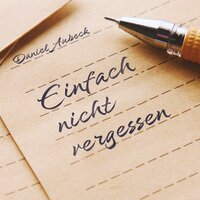 Daniel Aubeck
Einfach
nicht
vergessen